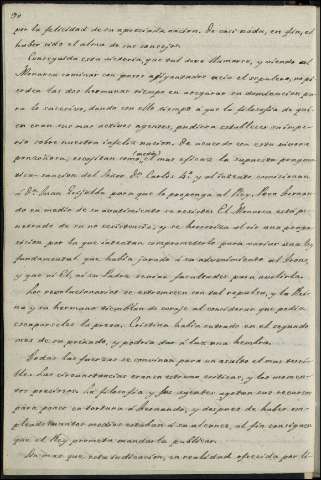 por la felicidad de su apreciada nacion. De casi nada, en fin, el
haber sido el alma de sus consejos.
Conseguida esta victoria, que tal debe llamarse, y viendo al
Monarca caminar con pasos agigantados acia el sepulcro, no pi
erden las dos hermanas tiempo en asegurar su dominacion pa
ra lo sucesivo, dando con ello tiempo á que la filosofia de qui
en eran sus mas activos agentes, pudiera establecer su impe
rio sobre nuestra infeliz nacion. De acuerdo con esta vívora
ponzoñosa, escogitan como medio el mas eficaz la supuesta pragma
tica-sancion del Señor Dn. Carlos 4º. y al intento comisionan
á Dn. Juan Grijalba para que la proponga al Rey. Pero Fernan
do en medio de su abatimiento se resiste. El Monarca está pe
netrado de su no existencia, y se horroriza al oir una propo
sicion por la que intentan comprometerle para variar una ley
fundamental que habia jurado á su advenimiento al Trono,
y que ni El, ni su Padre tenian facultades para abolirla.
Los revolucionarios se estremecen con tal repulsa, y la Rei
na y su hermana tiemblan de corage al considerar que podia
escaparseles la presa. Cristina habia entrado en el segundo
mes de su preñado, y podria dar á luz una hembra.
Todas las fuerzas se convinan para un asalto el mas terri
ble. Las circunstancias eran en estremo criticas, y los momen
tos preciosos. La filosofia y sus agentes apuran sus recursos
para poner en tortura á Fernando, y despues de haber em
pleado cuantos medios estaban á su alcance, al fin consiguen
que el Rey prometa mandarla publicar.
Sin mas que esta indicacion, en realidad ofrecida por li-